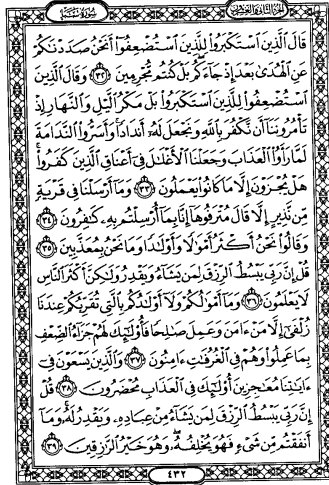 الجزء الثاني والعشرون سورة سبإ
قَالَ ٱلَّذِينَ ٱسْتَكْبَرُوا۟ لِلَّذِينَ ٱسْتُضْعِفُوٓا۟ أَنَحْنُ صَدَدْنَٰكُمْ
عَنِ ٱلْهُدَىٰ بَعْدَ إِذْ جَآءَكُم ۖ بَلْ كُنتُم مُّجْرِمِينَ ٣٢ وَقَالَ ٱلَّذِينَ
ٱسْتُضْعِفُوا۟ لِلَّذِينَ ٱسْتَكْبَرُوا۟ بَلْ مَكْرُ ٱلَّيْلِ وَٱلنَّهَارِ إِذْ
تَأْمُرُونَنَآ أَن نَّكْفُرَ بِٱللَّهِ وَنَجْعَلَ لَهُۥٓ أَندَادًا ۚ وَأَسَرُّوا۟ ٱلنَّدَامَةَ
لَمَّا رَأَوُا۟ ٱلْعَذَابَ وَجَعَلْنَا ٱلْأَغْلَٰلَ فِىٓ أَعْنَاقِ ٱلَّذِينَ كَفَرُوا۟ ۚ
هَلْ يُجْزَوْنَ إِلَّا مَا كَانُوا۟ يَعْمَلُونَ ٣٣ وَمَآ أَرْسَلْنَا فِى قَرْيَةٍ
مِّن نَّذِيرٍ إِلَّا قَالَ مُتْرَفُوهَآ إِنَّا بِمَآ أُرْسِلْتُم بِهِۦ كَٰفِرُونَ ٣٤
وَقَالُوا۟ نَحْنُ أَكْثَرُ أَمْوَٰلًا وَأَوْلَٰدًا وَمَا نَحْنُ بِمُعَذَّبِينَ ٣٥
قُلْ إِنَّ رَبِّى يَبْسُطُ ٱلرِّزْقَ لِمَن يَشَآءُ وَيَقْدِرُ وَلَٰكِنَّ أَكْثَرَ ٱلنَّاسِ
لَا يَعْلَمُونَ ٣٦ وَمَآ أَمْوَٰلُكُمْ وَلَآ أَوْلَٰدُكُم بِٱلَّتِى تُقَرِّبُكُمْ عِندَنَا
زُلْفَىٰٓ إِلَّا مَنْ ءَامَنَ وَعَمِلَ صَٰلِحًا فَأُو۟لَٰٓئِكَ لَهُمْ جَزَآءُ ٱلضِّعْفِ
بِمَا عَمِلُوا۟ وَهُمْ فِى ٱلْغُرُفَٰتِ ءَامِنُونَ ٣٧ وَٱلَّذِينَ يَسْعَوْنَ فِىٓ
ءَايَٰتِنَا مُعَٰجِزِينَ أُو۟لَٰٓئِكَ فِى ٱلْعَذَابِ مُحْضَرُونَ ٣٨ قُلْ
إِنَّ رَبِّى يَبْسُطُ ٱلرِّزْقَ لِمَن يَشَآءُ مِنْ عِبَادِهِۦ وَيَقْدِرُ لَهُۥ ۚ وَمَآ
أَنفَقْتُم مِّن شَىْءٍ فَهُوَ يُخْلِفُهُۥ ۖ وَهُوَ خَيْرُ ٱلرَّٰزِقِينَ ٣٩
٤٣٢